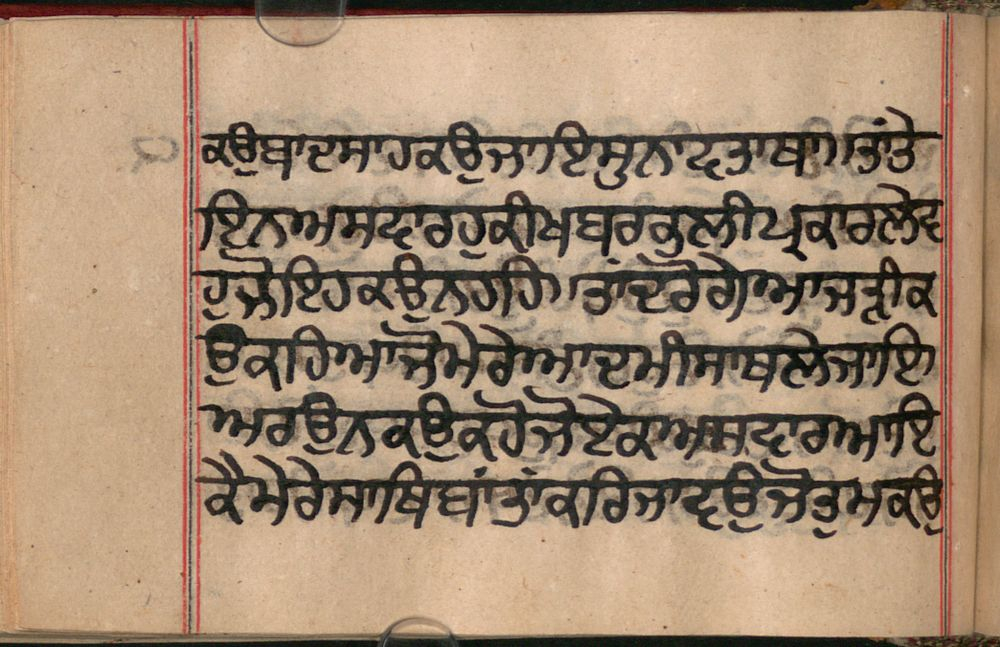 ਕਉਬਾਦਸਾਹਕਉਜਾਇਸੁਨਾਵਤਾਥਾ।ਤਾਂਤੇ
ਇਨਅਸਵਾਰਹੁਕੀਖਬਰਕੁਲੀਪ੍ਰਕਾਰਲੇਵ
ਹੁਜੋਇਹਕਉਨਹਹਿ।ਤਾਂਦਰੋਗੇਆਜੜੀਕ
ਉਕਹਿਆਜੋਮੇਰੇਆਦਮੀਸਾਥਲੇਜਾਇ
ਅਰਉਨਕਉਕਹੋਜੋਏਕਅਸਵਾਰਆਇ
ਕੈਮੇਰੇਸਾਥਿਬਾਂਤਾਂਕਰਿਜਾਵਉਜੋਤੁਮਕਉ